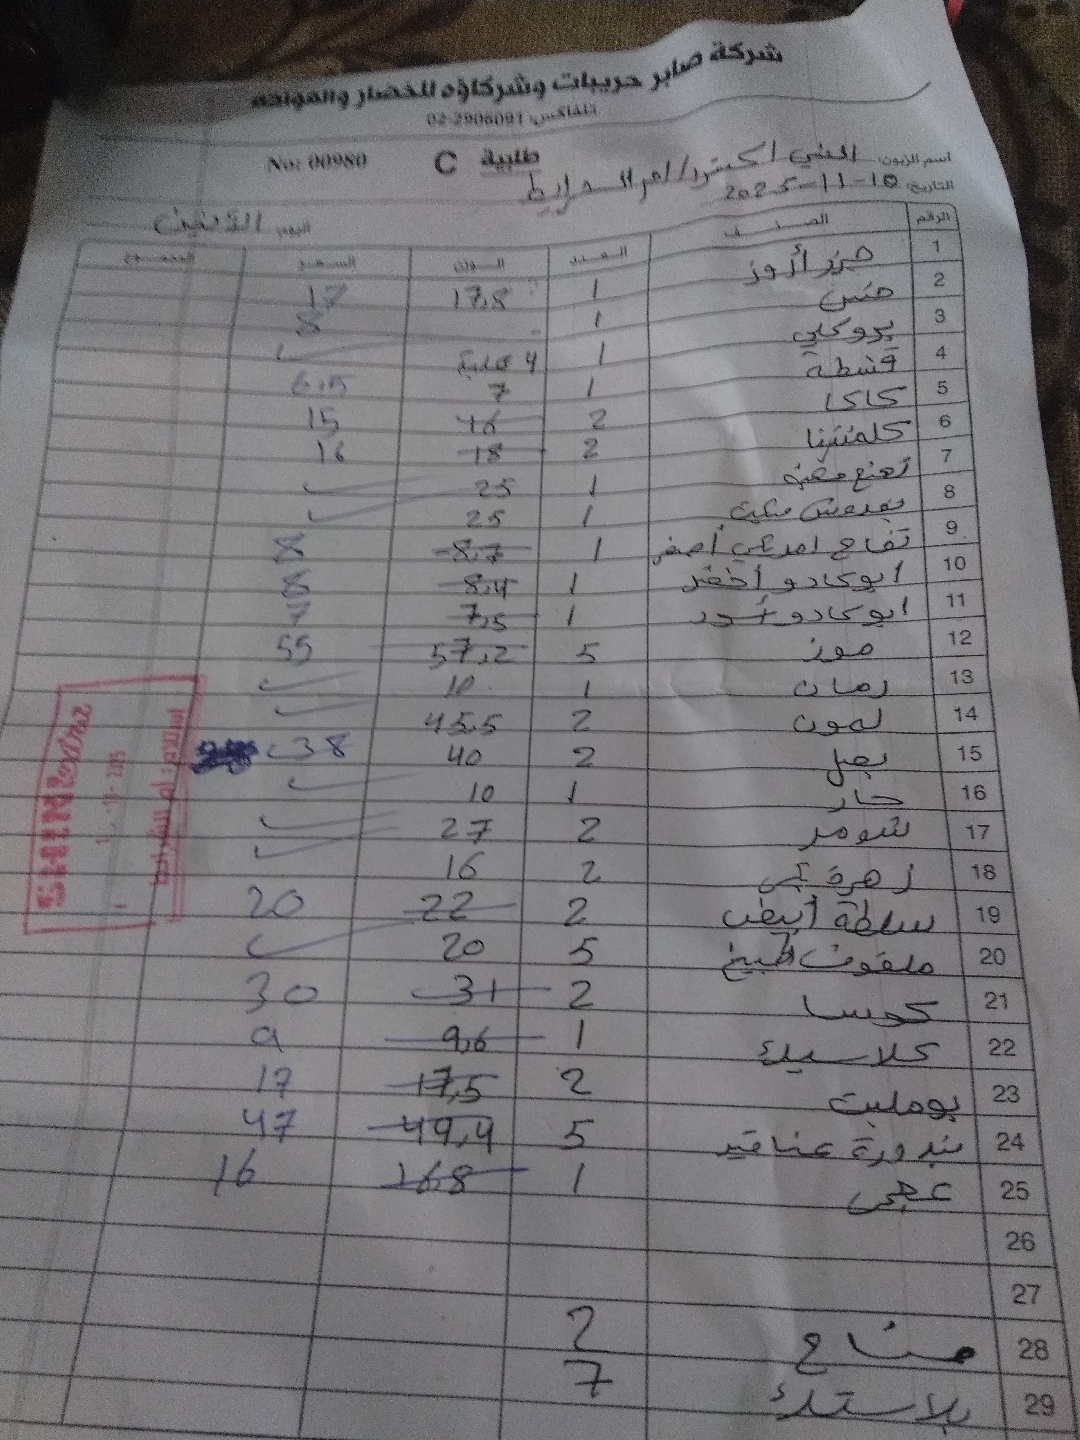 شركة صابر حريبات وشركاؤه للخضار والفواكه
تلفاكس: 02-2906091
No: 00980 C طلبية
اسم الزبون:
التاريخ: 10-11-2025
اليوم: الاثنين
الرقم الصنف العدد الوزن السعر المجموع
1 جزر أروز 1 17,8 17
2 خس 1 8
3 بروكلي 1 4 علبة ✓
4 قشطة 1 7 6.5
5 كاكا 2 16 15
6 كلمنتينا 2 18 16
7 1 25 ✓
8 1 25 ✓
9 تفاح أصفر 1 8,7 8
10 ابوكادو أخضر 1 8,4 8
11 ابوكادو أسود 1 7,5 7
12 موز 5 57,2 55
13 رمان 1 10 ✓
14 لمون 2 45.5 ✓
15 بصل 2 40 38
16 حار 1 10 ✓
17 شومر 2 27 ✓
18 زهرة 2 16 ✓
19 سلطة أبيض 2 22 20
20 ملفوف طبيخ 5 20 ✓
21 كوسا 2 31 30
22 كلاسيك 1 9,6 9
23 بومليت 2 17,5 17
24 بندورة عناقيد 5 49,4 47
25 عجمي 1 16,8 16
26
27
28 2
29 بلاستك 7